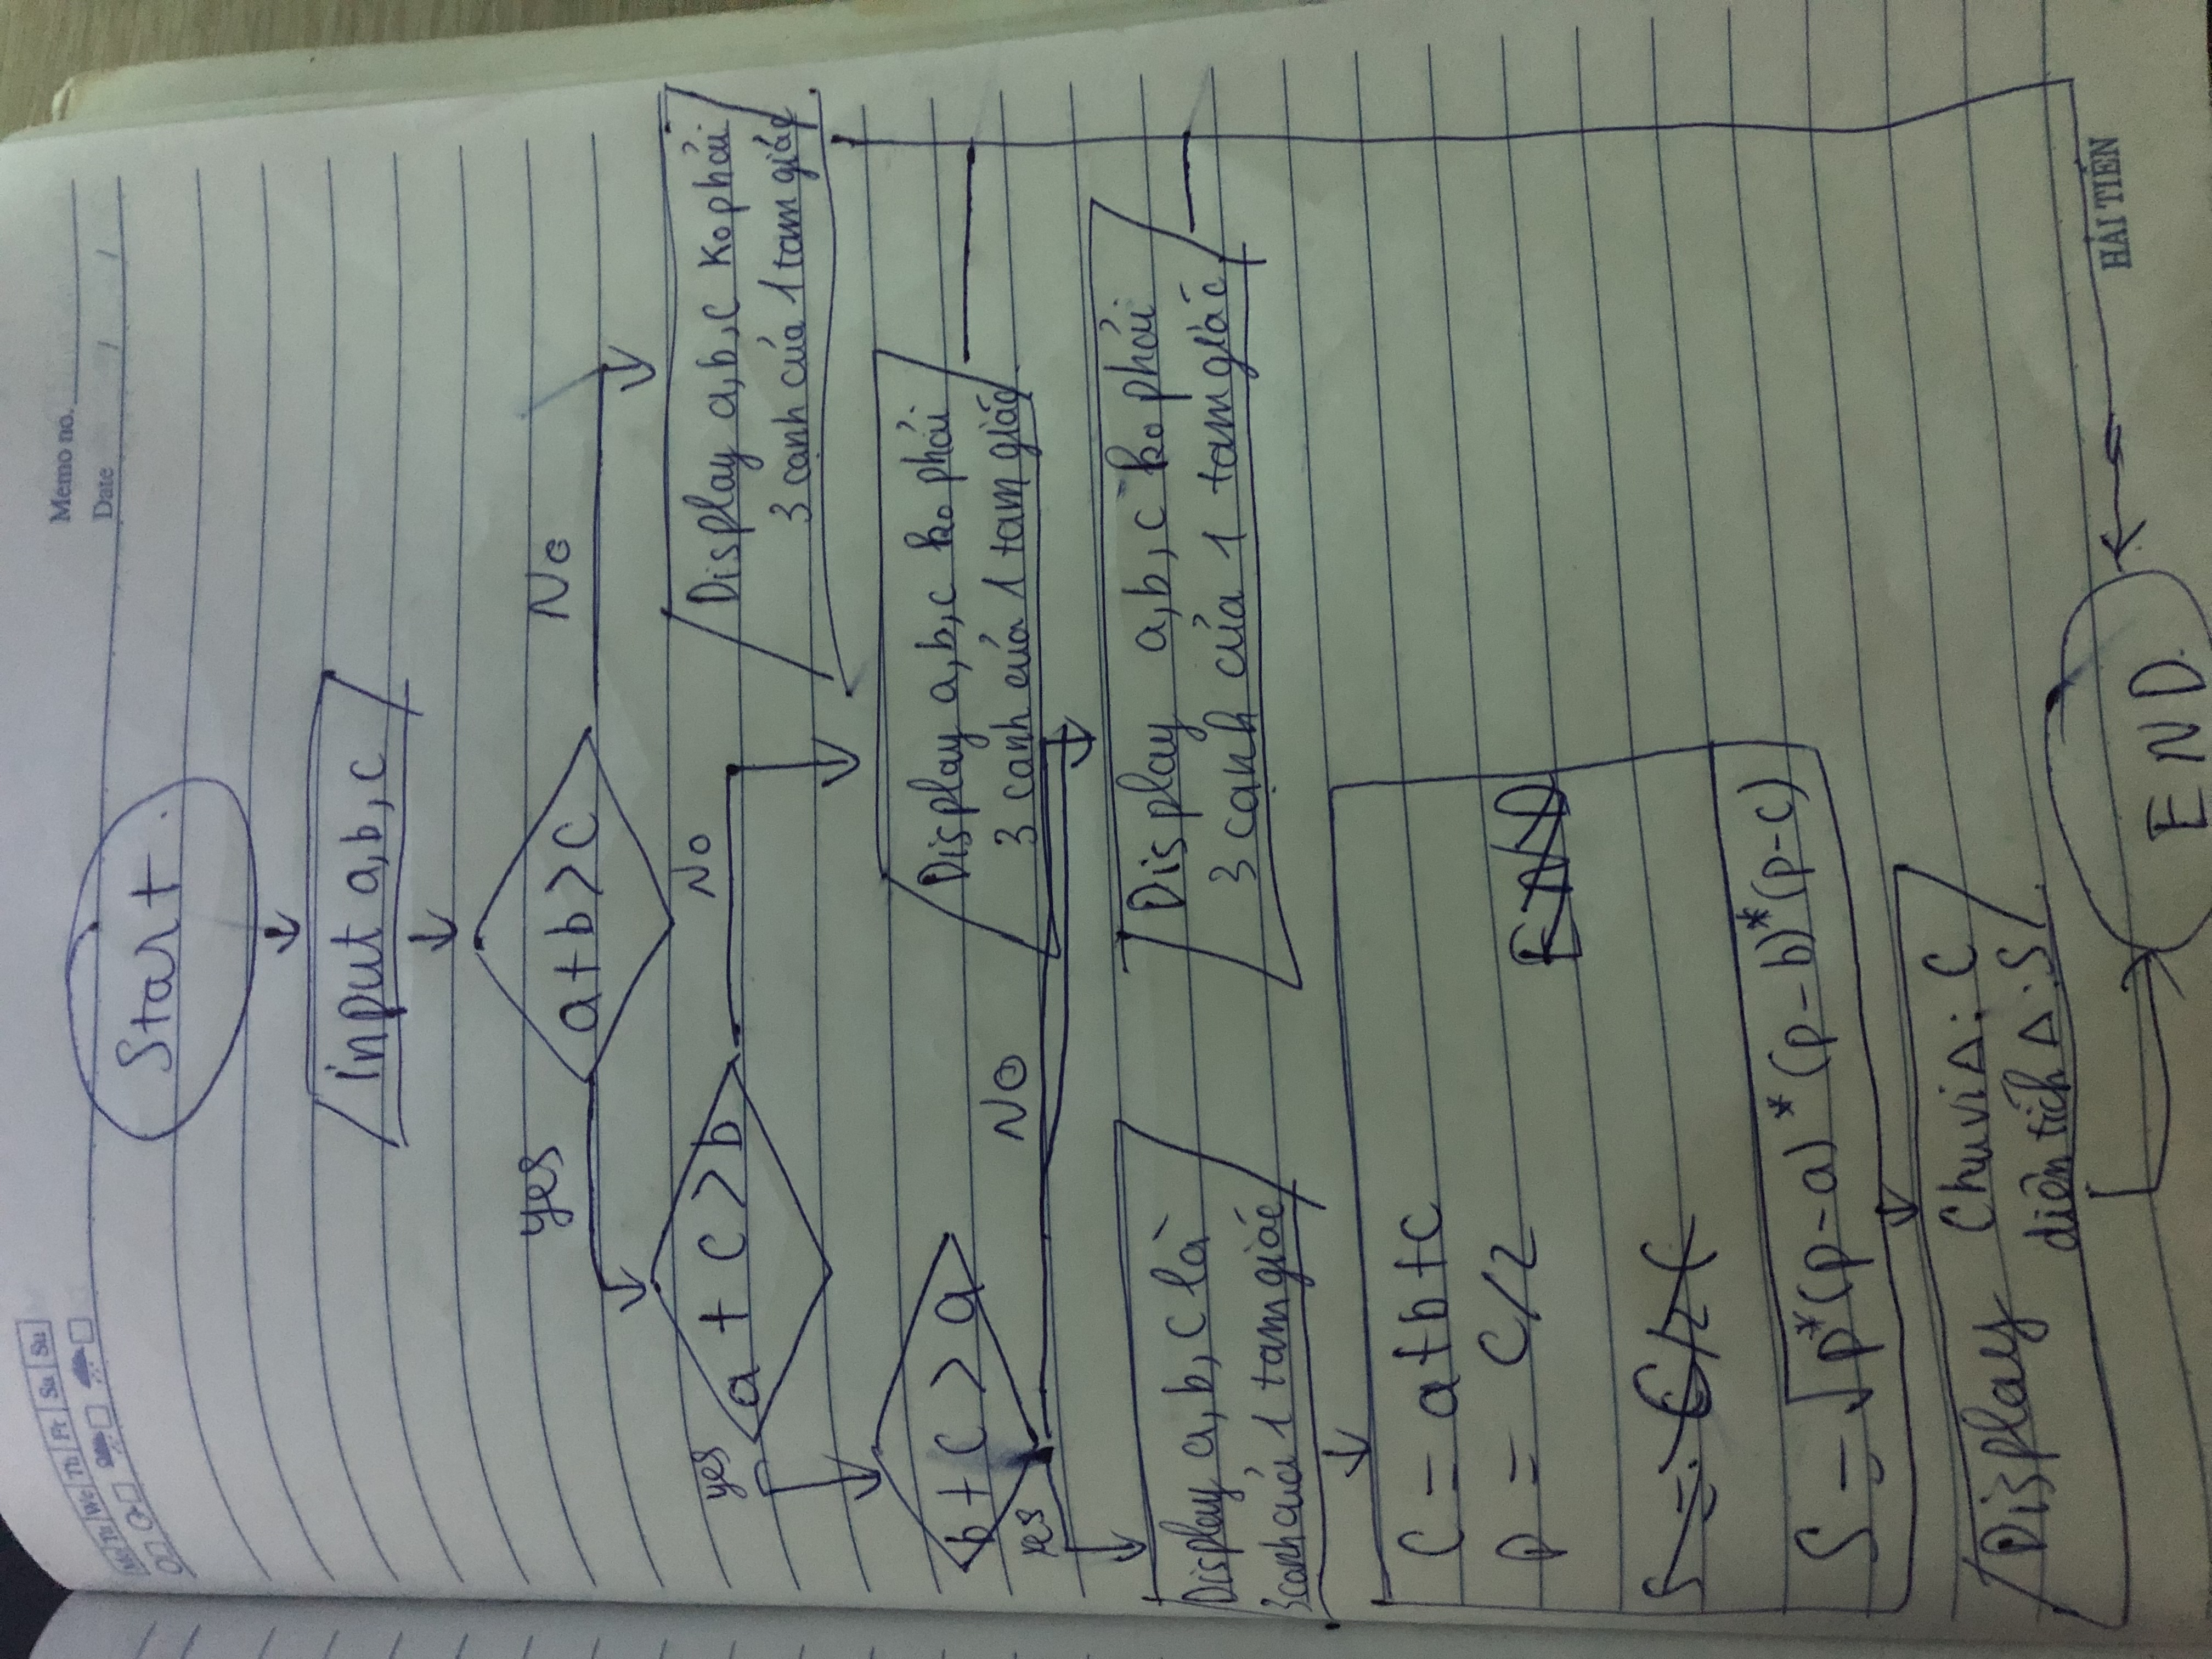 Mo Tu We Th Fr Sa Su
Memo no.
Date / /
Start
input a, b, c
yes
a + b > c
No
yes
a + c > b
No
Display a, b, c ko phải
3 cạnh của 1 tam giác
b + c > a
yes
NO
Display a, b, c ko phải
3 cạnh của 1 tam giác
Display a, b, c là
3 cạnh của 1 tam giác
Display a, b, c ko phải
3 cạnh của 1 tam giác
C = a + b + c
p = C/2
END
S = √p*(p-a)*(p-b)*(p-c)
Display Chu vi Δ: C
diện tích Δ: S
END
HẢI TIẾN